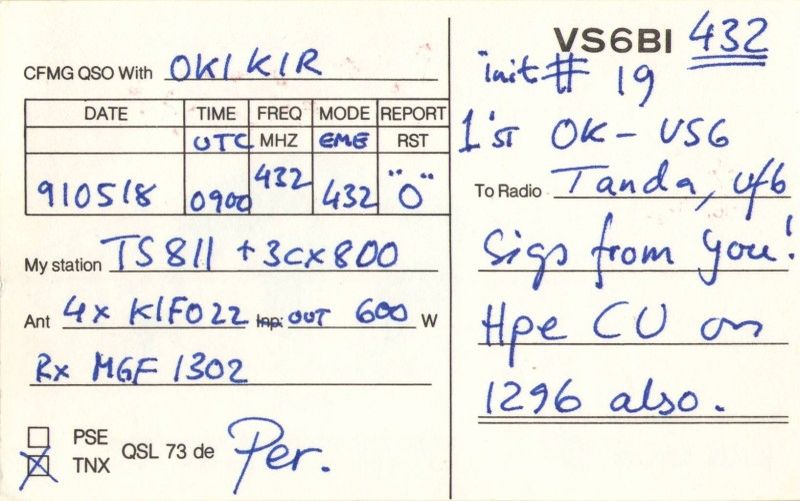 CFMG QSO With OK1KIR
DATE TIME FREQ MODE REPORT
UTC MHZ EME RST
910518 0900 432 432 "O"
My station TS811 + 3CX800
Ant 4x K1FO22 Inp: OUT 600 W
Rx MGF 1302
PSE
TNX QSL 73 de Per.
VS6BI 432
init # 19
1'st OK - VS6
To Radio Tanda, ufb
Sigs from you!
Hpe CU on
1296 also.